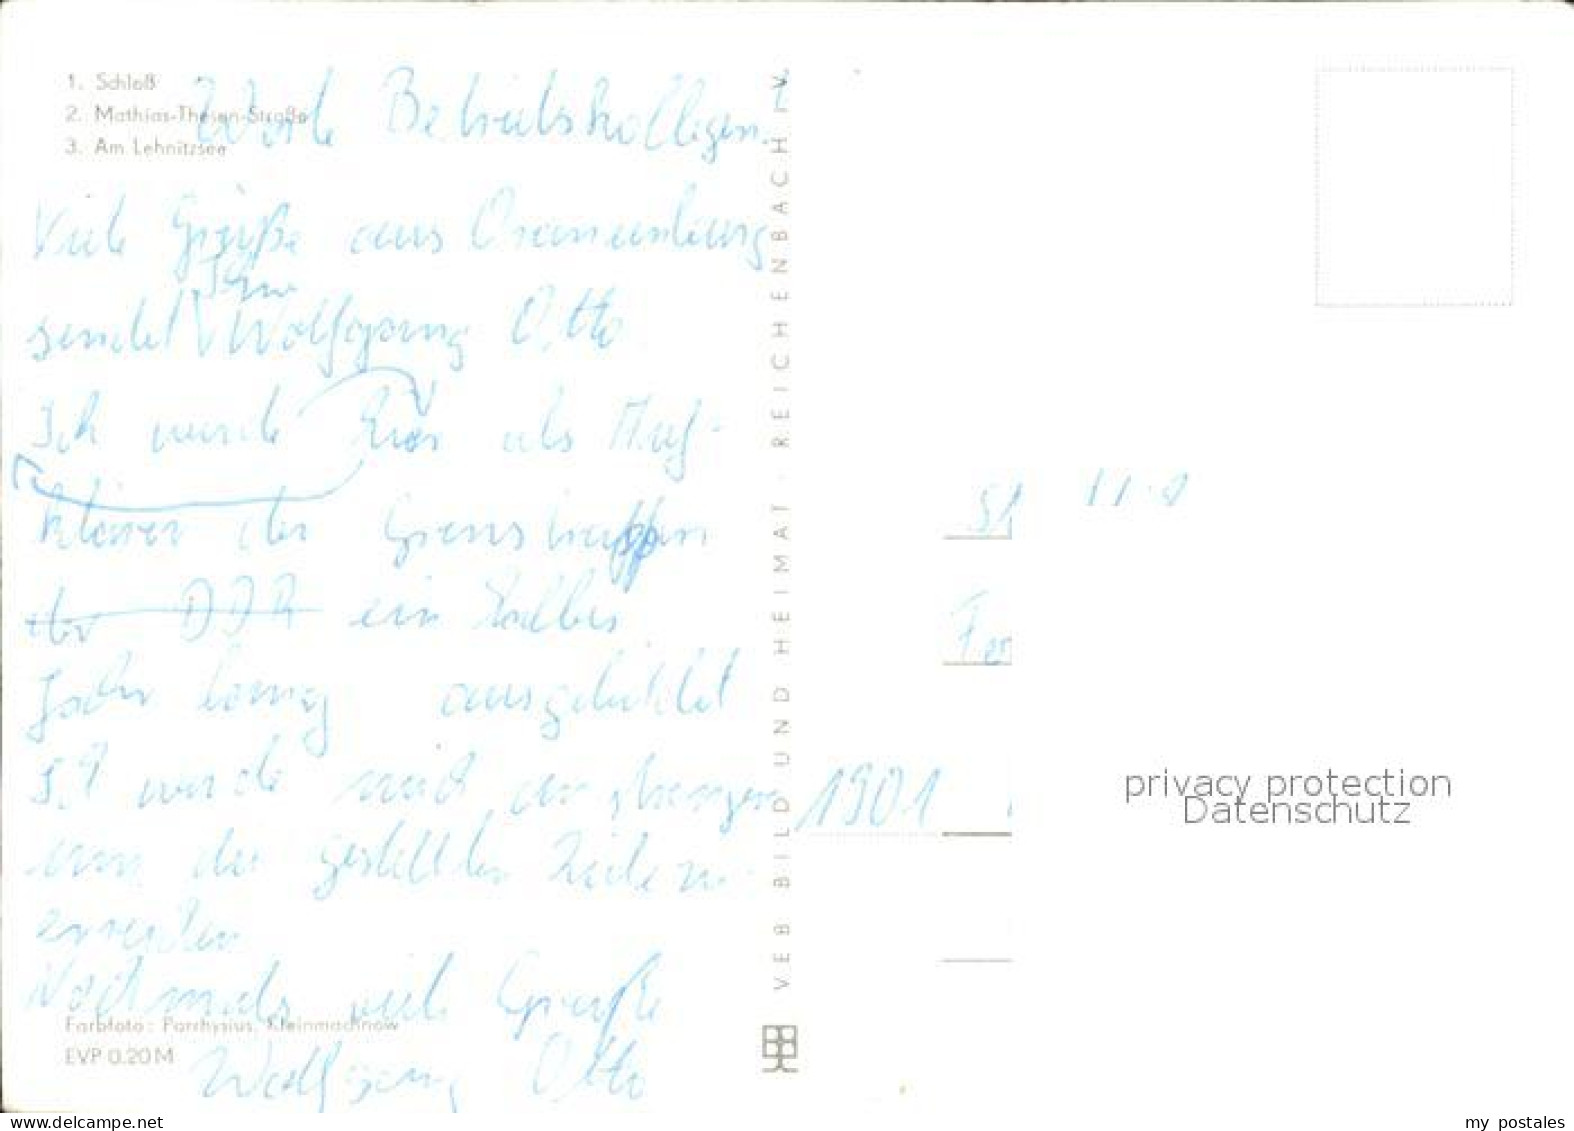 1. Schloß
2. Mathias-Thesen-Straße
3. Am Lehnitzsee
Werte Betriebskollegen!
Viele Grüße aus Oranienburg
sendet Ihnen Wolfgang Otto
Ich wurde hier als Auf-
klärer der Grenztruppen
der DDR ein halbes
Jahr lang ausgebildet
Ich werde mich anstrengen
um die gestellten Ziele zu
erreichen
Nochmals viele Grüße
Wolfgang Otto
Farbfoto: Parrhysius, Kleinmachnow
EVP 0.20 M
VEB BILD UND HEIMAT · REICHENBACH I. V.
1901
privacy protection
Datenschutz
www.delcampe.net
my postales